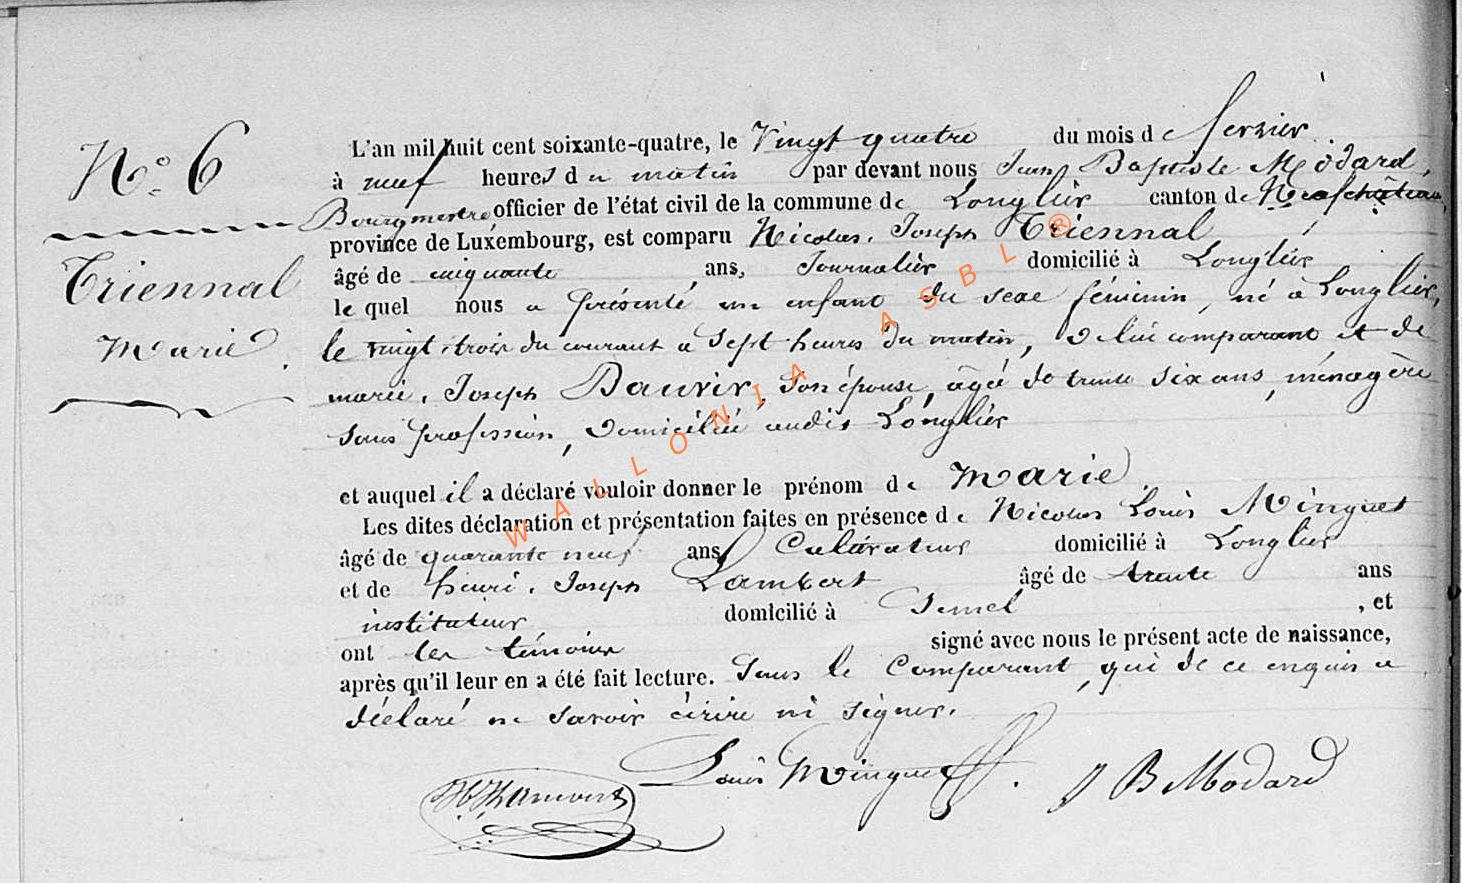 N.° 6
Triennal
Marie
L'an mil huit cent soixante-quatre, le Vingt quatre du mois de fevrier
à neuf heures du matin par devant nous Jean Baptiste Modard,
Bourgmestre, officier de l'état civil de la commune de Longlier canton de Neufchâteau,
province de Luxembourg, est comparu Nicolas, Joseph Triennal
âgé de cinquante ans, Journalier domicilié à Longlier
lequel nous a présenté un enfant du sexe féminin, né à Longlier,
le vingt-trois du courant à sept heures du matin, de lui comparant et de
marie, Joseph Dauvir, son épouse, âgée de trente six ans, ménagère
sans profession, domiciliée audit Longlier
et auquel il a déclaré vouloir donner le prénom de Marie
Les dites déclaration et présentation faites en présence de Nicolas Louis Minguet
âgé de quarante neuf ans, Cultivateur domicilié à Longlier
et de henri, Joseph Lambert âgé de trente ans
instituteur domicilié à Semel, et
ont les témoins signé avec nous le présent acte de naissance,
après qu'il leur en a été fait lecture. Sauf le Comparant, qui de ce enquis a
déclaré ne savoir écrire ni signer.
Louis Minguet J B Modard
WALLONIA ASBL ®